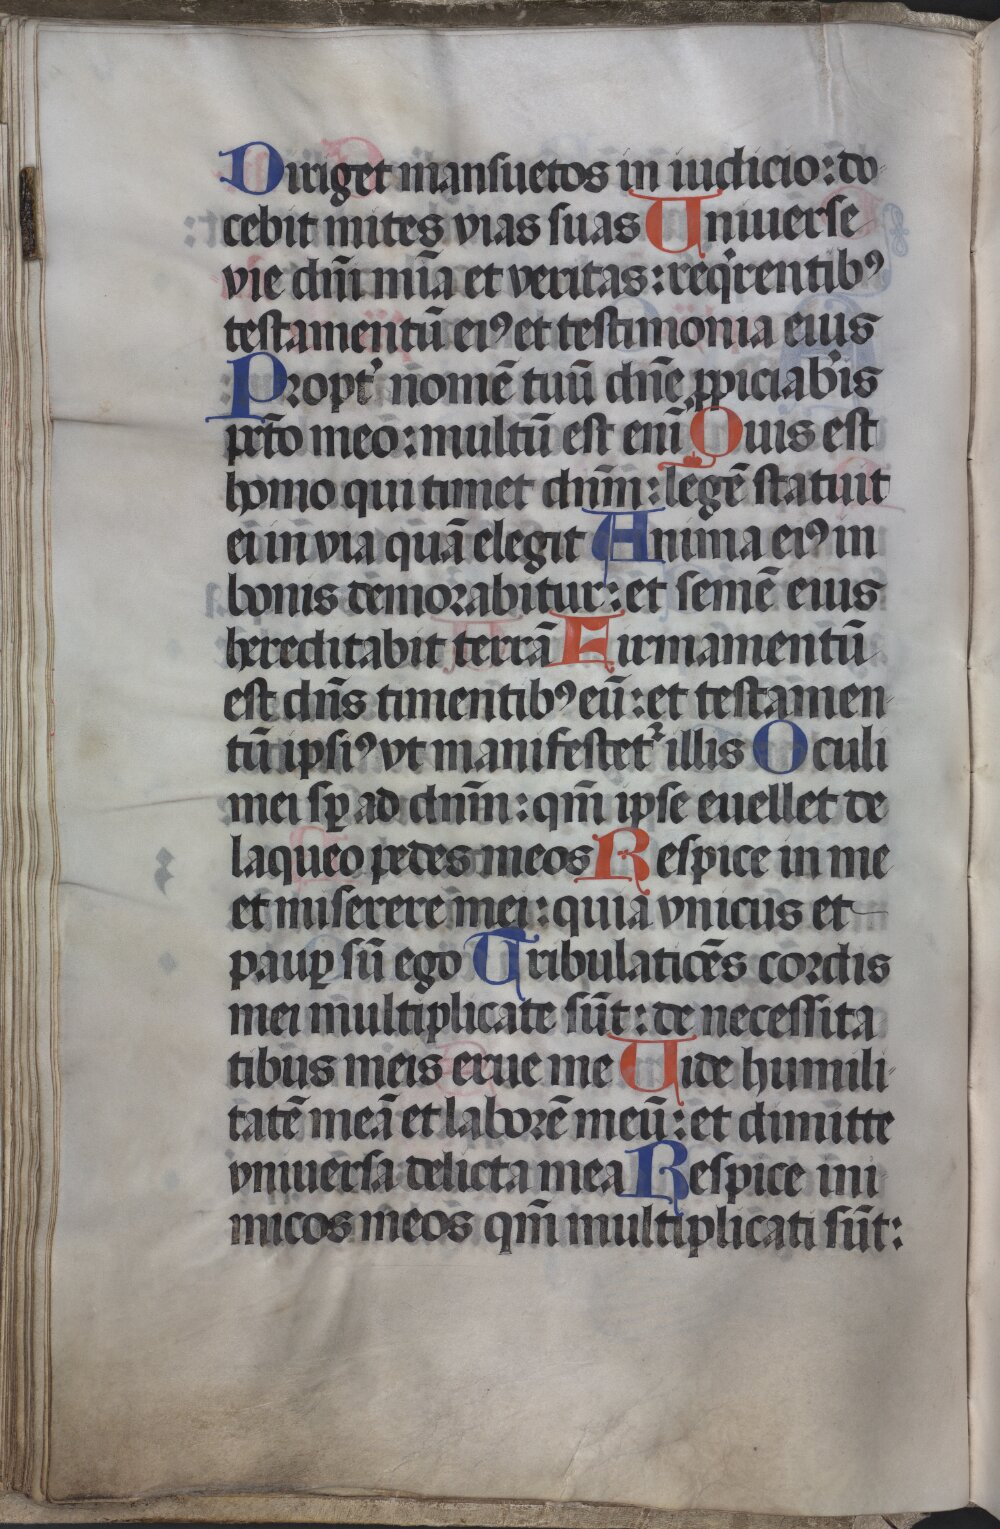 Diriget mansuetos in iudicio: do
cebit mites vias suas Uniuerse
vie dn̄i mīa et veritas: reqͥrentibꝰ
testamentū eiꝰ et testimonia eius
Propt᷑ nomē tuū dn̄e ꝓpiciab᷑is
pctō meo: multū est enī Quis est
homo qui timet dnm̄: legē statuit
ei in via quā elegit Anima eiꝰ in
bonis demorabitur: et semē eius
hereditabit terrā Firmamentū
est dn̄s timentibꝰ eū: et testamen
tū ipsiꝰ vt manifestet᷑ illis Oculi
mei sꝑ ad dnm̄: qm̄ ipse euellet de
laqueo pedes meos Respice in me
et miserere mei: quia vnicus et
pauꝑ sū ego Tribulatiōes cordis
mei multiplicate sūt: de necessita
tibus meis erue me Uide humili
tatē meā et laborē meū: et dimitte
vniuersa delicta mea Respice ini
micos meos qm̄ multiplicati sūt: